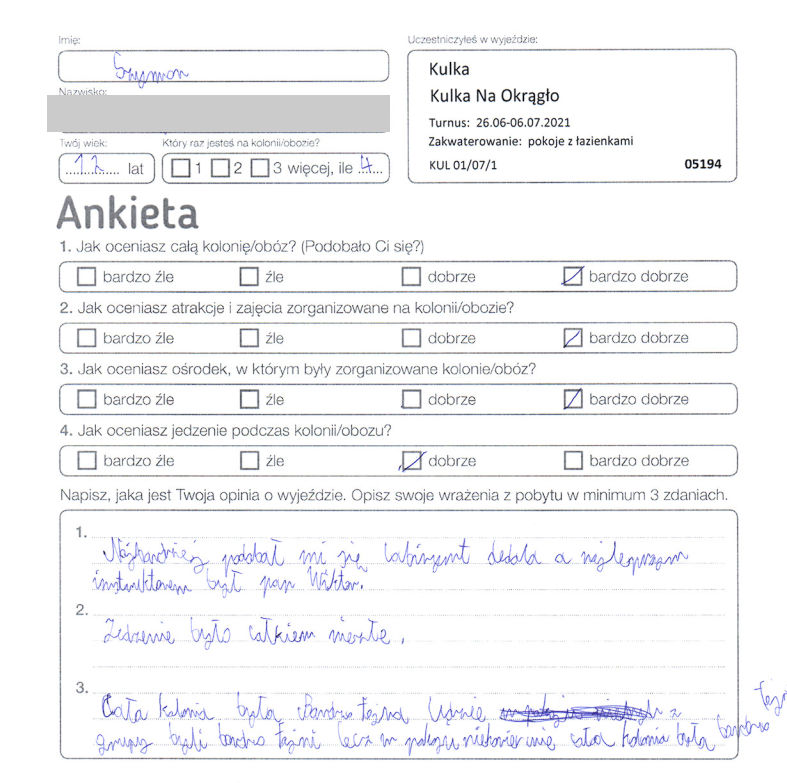 Imię:
Szymon
Uczestniczyłeś w wyjeździe:
Kulka
Kulka Na Okrągło
Turnus: 26.06-06.07.2021
Zakwaterowanie: pokoje z łazienkami
KUL 01/07/1 05194
Nazwisko:
Twój wiek: Który raz jesteś na kolonii/obozie?
12 lat 1 2 3 więcej, ile 4
Ankieta
1. Jak oceniasz całą kolonię/obóz? (Podobało Ci się?)
bardzo źle źle dobrze bardzo dobrze
2. Jak oceniasz atrakcje i zajęcia zorganizowane na kolonii/obozie?
bardzo źle źle dobrze bardzo dobrze
3. Jak oceniasz ośrodek, w którym były zorganizowane kolonie/obóz?
bardzo źle źle dobrze bardzo dobrze
4. Jak oceniasz jedzenie podczas kolonii/obozu?
bardzo źle źle dobrze bardzo dobrze
Napisz, jaka jest Twoja opinia o wyjeździe. Opisz swoje wrażenia z pobytu w minimum 3 zdaniach.
1.
Najbardziej podobał mi się labirynt dedala a najlepszym
instruktorem był pan Wiktor.
2.
Jedzenie było całkiem niezłe.
3.
Cała kolonia była bardzo fajna z
grupy byli bardzo fajni lecz w pokoju cała kolonia była bardzo fajn